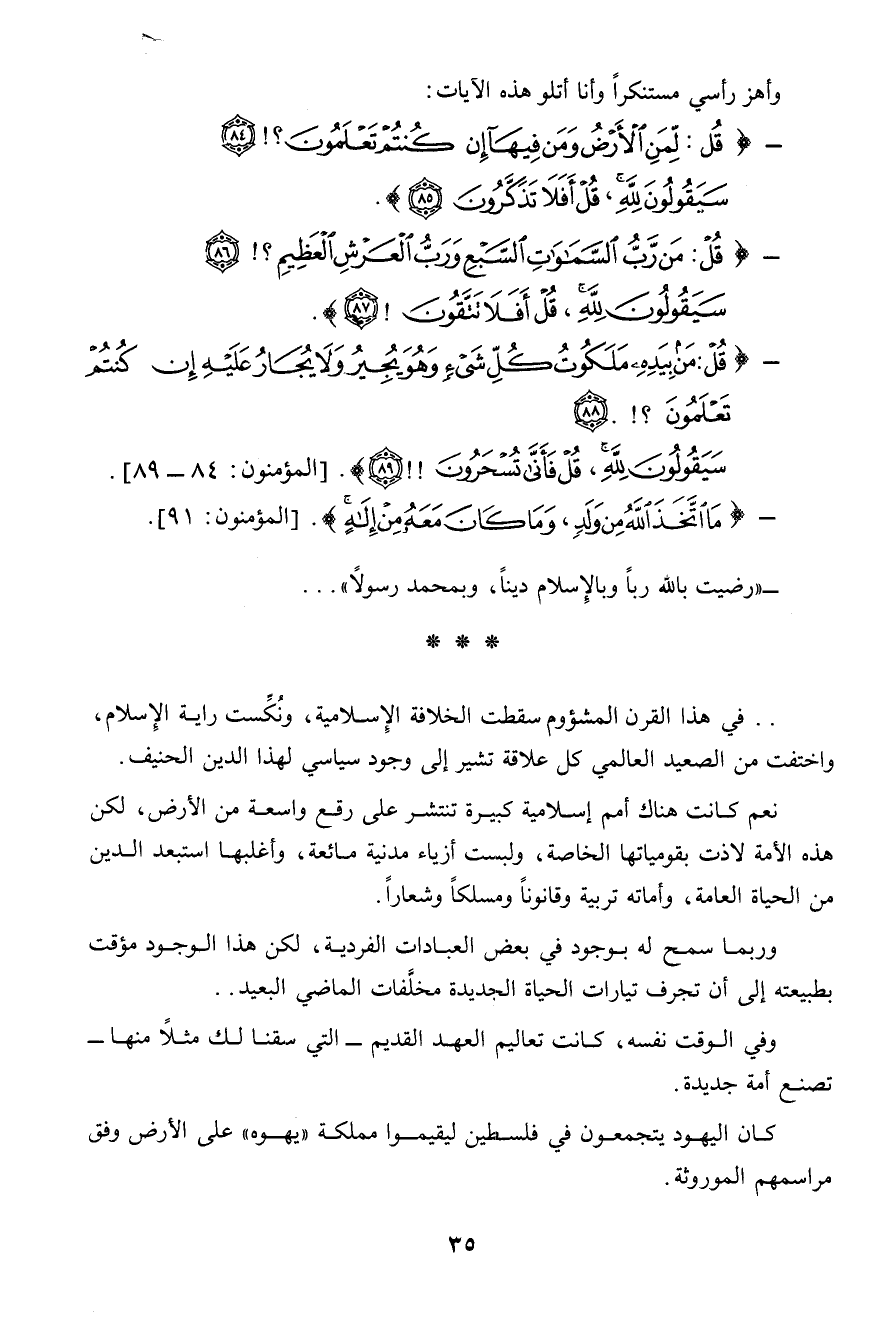 وأهز رأسي مستنكراً وأنا أتلو هذه الآيات:
– ﴿ قُل : لِّمَنِ ٱلْأَرْضُ وَمَن فِيهَآ إِن كُنتُمْ تَعْلَمُونَ ؟! ٨٤
سَيَقُولُونَ لِلَّهِ ۚ ، قُلْ أَفَلَا تَذَكَّرُونَ ٨٥ ﴾ .
– ﴿ قُلْ: مَن رَّبُّ ٱلسَّمَٰوَٰتِ ٱلسَّبْعِ وَرَبُّ ٱلْعَرْشِ ٱلْعَظِيمِ ؟! ٨٦
سَيَقُولُونَ لِلَّهِ ۚ ، قُلْ أَفَلَا تَتَّقُونَ ! ٨٧ ﴾ .
– ﴿ قُلْ: مَنۢ بِيَدِهِۦ مَلَكُوتُ كُلِّ شَىْءٍ وَهُوَ يُجِيرُ وَلَا يُجَارُ عَلَيْهِ إِن كُنتُمْ
تَعْلَمُونَ ؟! . ٨٨
سَيَقُولُونَ لِلَّهِ ۚ ، قُلْ فَأَنَّىٰ تُسْحَرُونَ !! ٨٩ ﴾ . [المؤمنون: ٨٤ – ٨٩] .
– ﴿ مَا ٱتَّخَذَ ٱللَّهُ مِن وَلَدٍ ، وَمَا كَانَ مَعَهُۥ مِنْ إِلَٰهٍ ۚ ﴾ . [المؤمنون: ٩١].
–«رضيت بالله رباً وبالإسلام ديناً، وبمحمد رسولاً» . . .
* * *
. . في هذا القرن المشؤوم سقطت الخلافة الإسلامية، ونُكِّست راية الإسلام،
واختفت من الصعيد العالمي كل علاقة تشير إلى وجود سياسي لهذا الدين الحنيف.
نعم كانت هناك أمم إسلامية كبيرة تنتشر على رقع واسعة من الأرض، لكن
هذه الأمة لاذت بقومياتها الخاصة، ولبست أزياء مدنية مائعة، وأغلبها استبعد الدين
من الحياة العامة، وأماته تربية وقانوناً ومسلكاً وشعاراً.
وربما سمح له بوجود في بعض العبادات الفردية، لكن هذا الوجود مؤقت
بطبيعته إلى أن تجرف تيارات الحياة الجديدة مخلَّفات الماضي البعيد. .
وفي الوقت نفسه، كانت تعاليم العهد القديم – التي سقنا لك مثلاً منها –
تصنع أمة جديدة.
كان اليهود يتجمعون في فلسطين ليقيموا مملكة «يهوه» على الأرض وفق
مراسمهم الموروثة.
٣٥